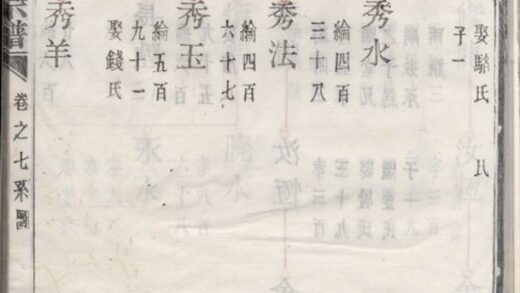 娶駱氏　氏
子一
秀水
綸四百
三十八
秀法
綸四百
六十七
秀玉
綸五百
九十一
娶錢氏
秀羊
宗譜
卷之七系圖